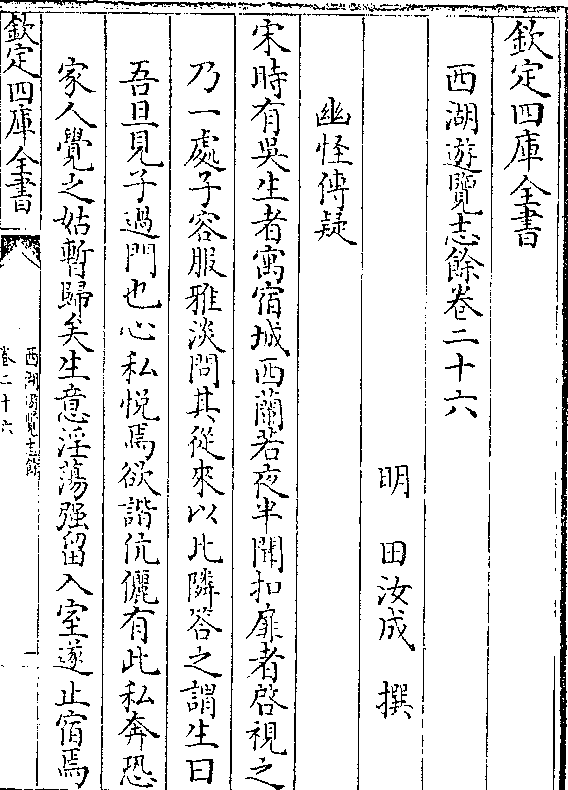 欽定四庫全書
西湖遊覽志餘卷二十六
明 田汝成 撰
幽怪傳疑
宋時有吳生者寓宿城西蘭若夜半聞扣扉者啓視之
乃一處子容服雅淡問其從來以比隣答之謂生曰
吾旦見子過門也心私悦焉欲諧伉儷有此私奔恐
家人覺之姑暫歸矣生意淫蕩强留入室遂止宿焉
欽定四庫全書
西湖遊覽志餘
卷二十六
一